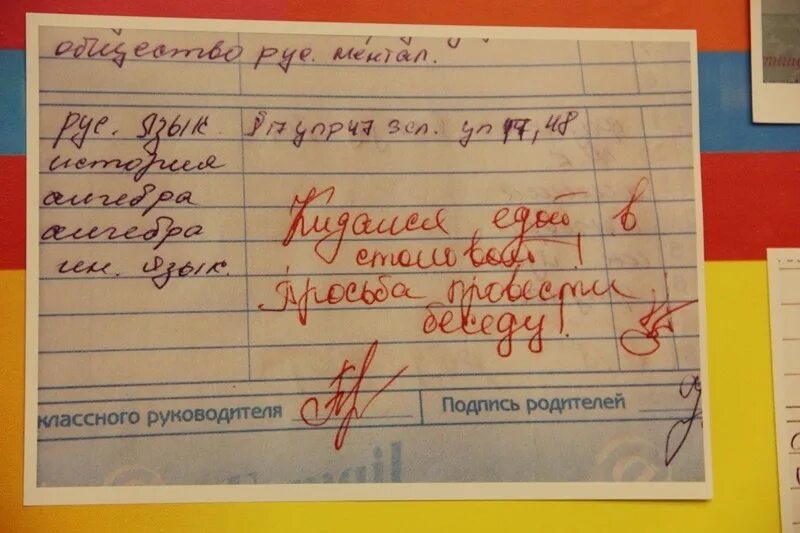 общество рус. ментал.
рус. язык. §17 упр 47 зсп. уп 17, 48
история
алгебра
алгебра
ин. язык.
Кидался едой в
столовой!
Просьба провести
беседу!
классного руководителя
Подпись родителей
mail